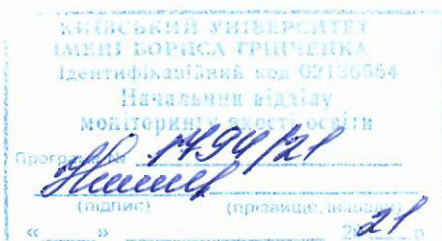 КИЇВСЬКИЙ УНІВЕРСИТЕТ
ІМЕНІ БОРИСА ГРІНЧЕНКА
Ідентифікаційний код 02136554
Начальник відділу
моніторингу якості освіти
Програма № 1794/21
(підпис) (прізвище, ініціали)
« » 2021 р